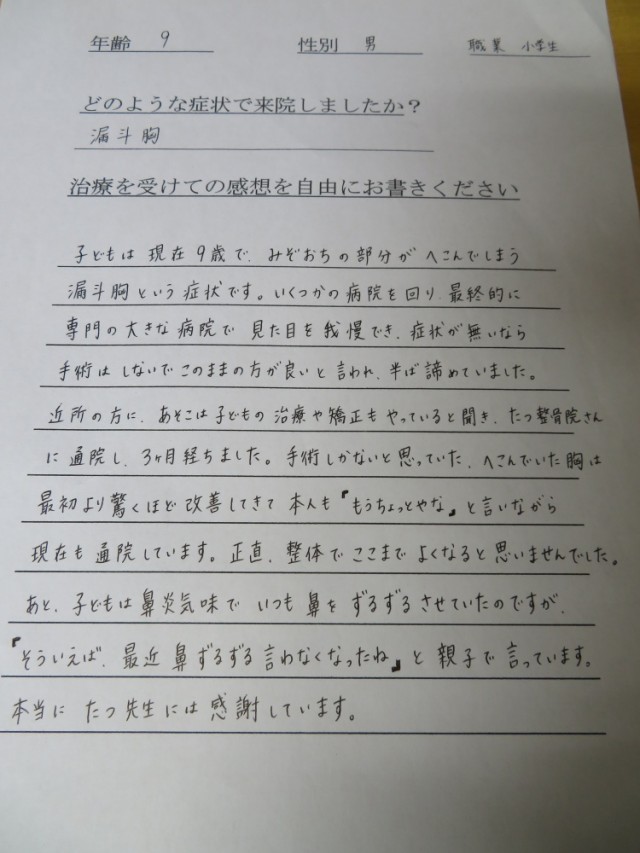 年齢 9 性別 男 職業 小学生
どのような症状で来院しましたか？
漏斗胸
治療を受けての感想を自由にお書きください
子どもは現在9歳で、みぞおちの部分がへこんでしまう
漏斗胸という症状です。いくつかの病院を回り、最終的に
専門の大きな病院で見た目を我慢でき、症状が無いなら
手術はしないでこのままの方が良いと言われ、半ば諦めていました。
近所の方に、あそこは子どもの治療や矯正もやっていると聞き、たつ整骨院さん
に通院し、3ヶ月経ちました。手術しかないと思っていた、へこんでいた胸は
最初より驚くほど改善してきて本人も『もうちょっとやな』と言いながら
現在も通院しています。正直、整体でここまでよくなると思いませんでした。
あと、子どもは鼻炎気味でいつも鼻をずるずるさせていたのですが、
『そういえば、最近鼻ずるずる言わなくなったね』と親子で言っています。
本当にたつ先生には感謝しています。